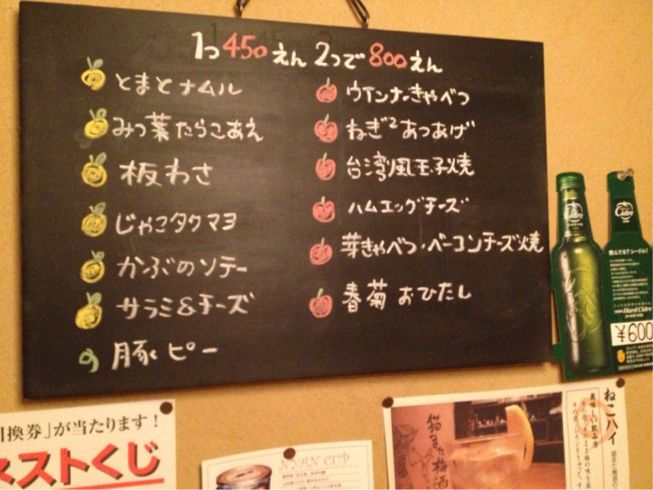 1つ450えん 2つで800えん
とまとナムル
みつ葉たらこあえ
板わさ
じゃこタクマヨ
かぶのソテー
サラミ&チーズ
豚ピー
ウインナーきゃべつ
ねぎ²あつあげ
台湾風玉子焼
ハムエッグチーズ
芽きゃべつ・ベーコンチーズ焼
春菊おひたし
Cidre
Cidre
Hard Cidre
¥600
引換券」が当たります!
ストくじ
NYAN CUP
猫また梅酒
ねこハイ
美味しい飲み方